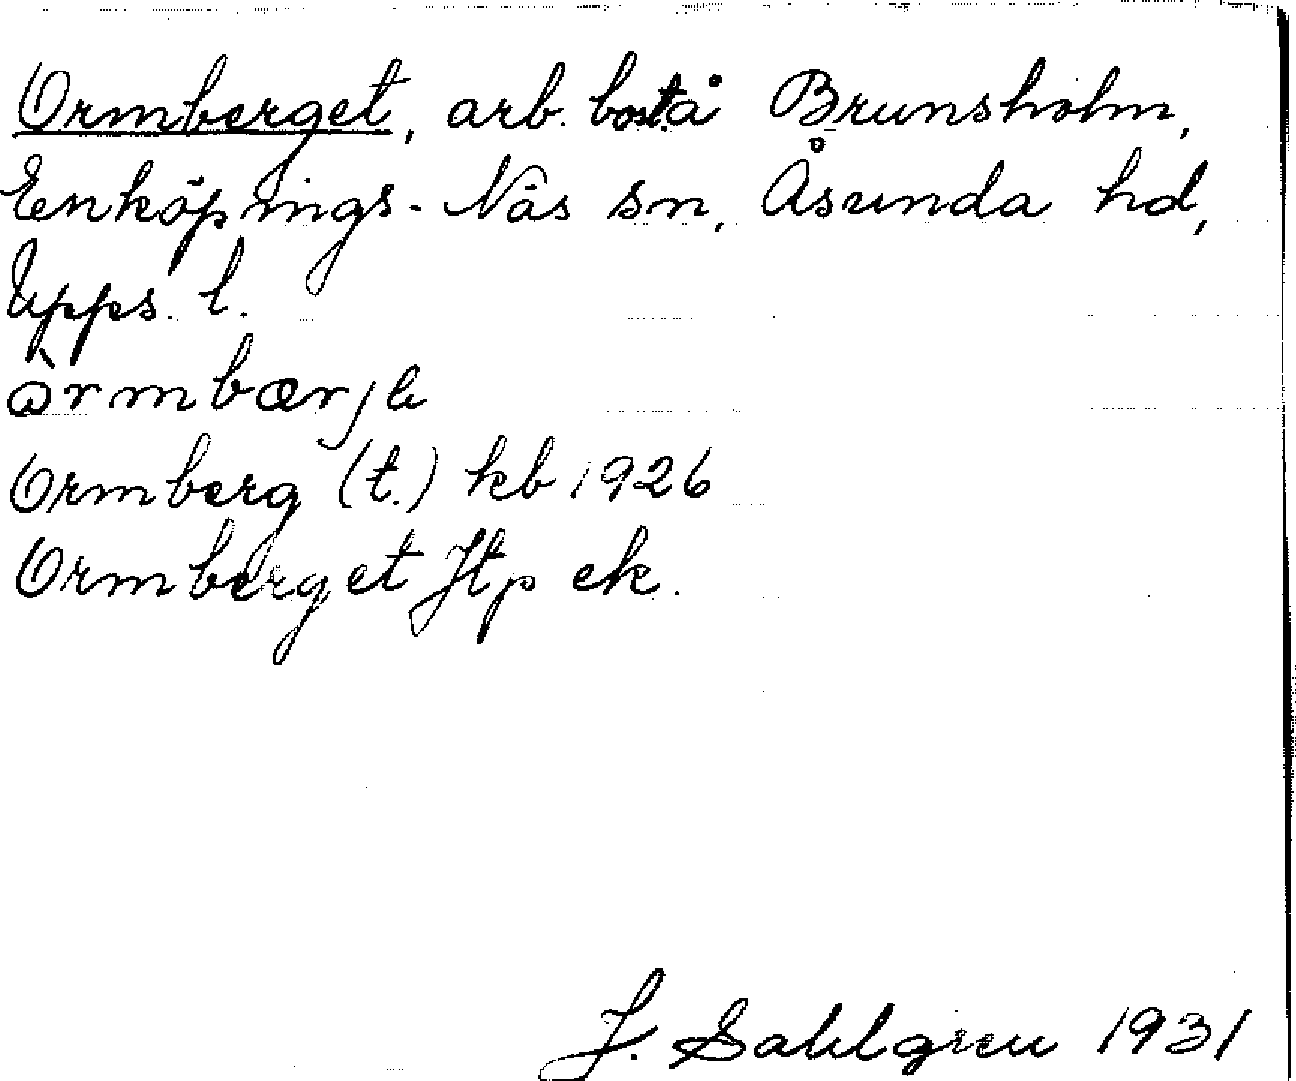 Ormberget, arb. bost. å Brunsholm,
Enköpings-Näs sn, Åsunda hd,
Upps. l.
ɷ̀rmbærjə
Ormberg (t.) kb 1926
Ormberget Jtp ek.
J. Sahlgren 1931